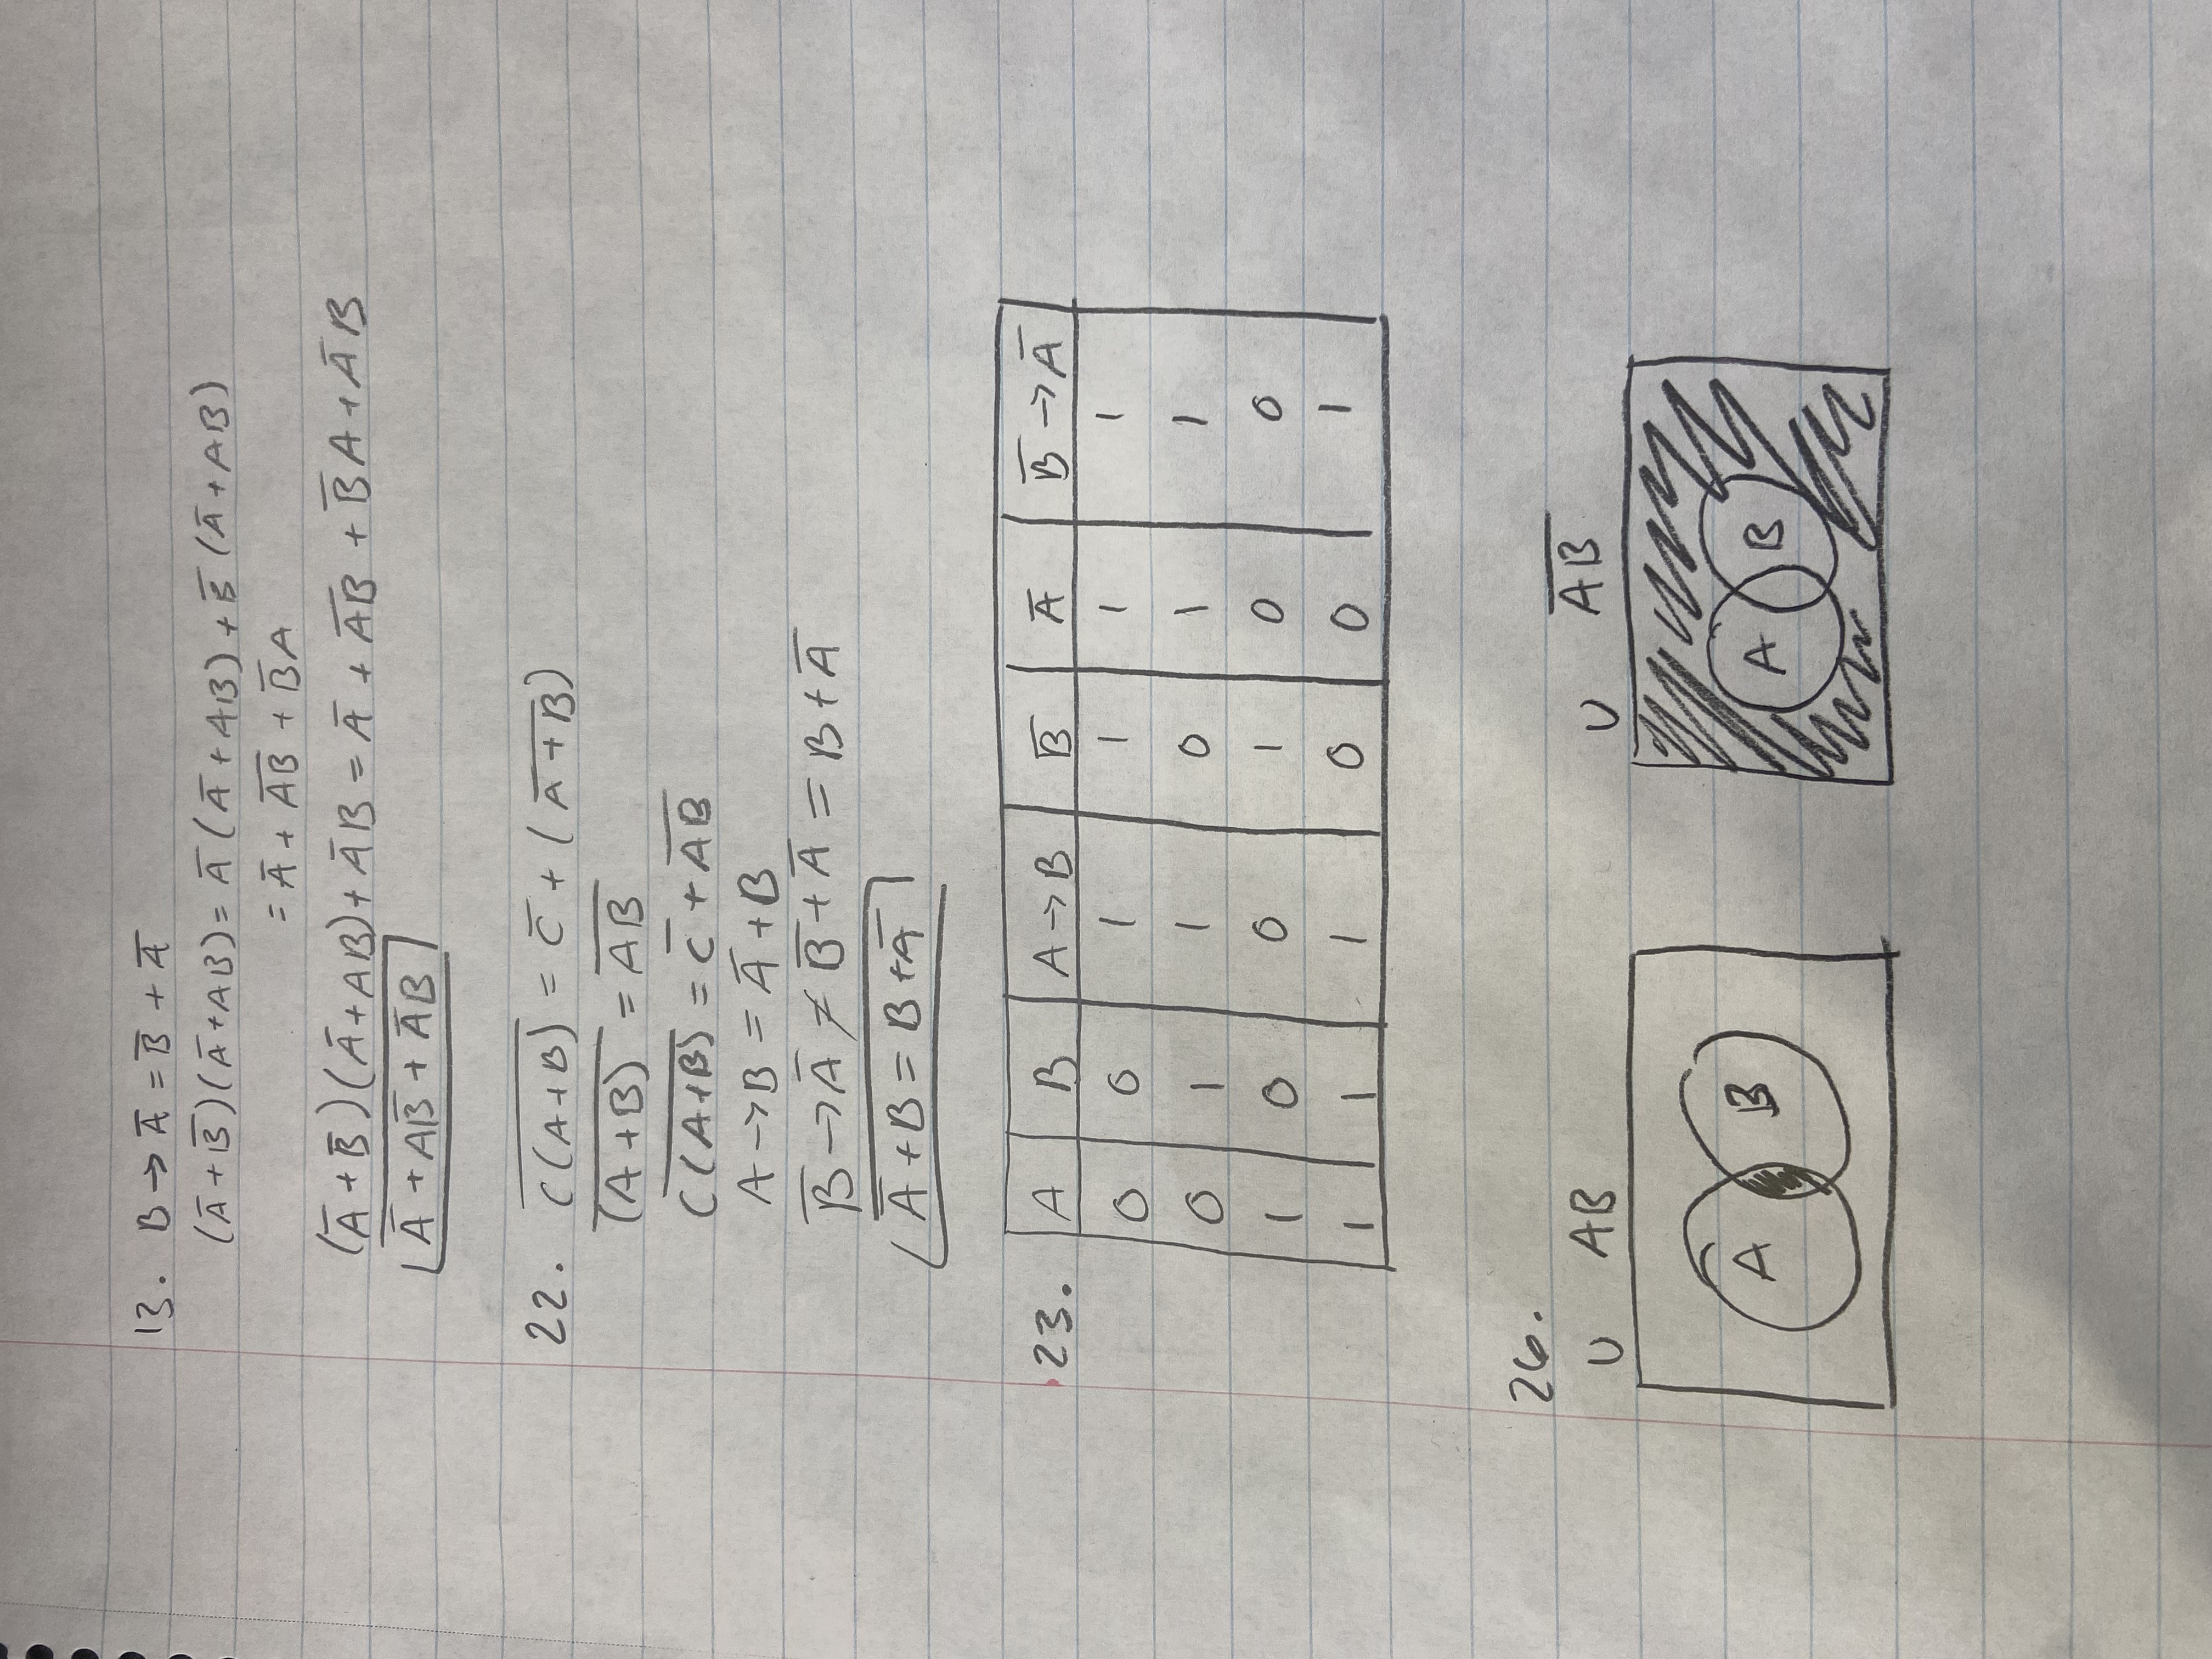 13. B → A̅ = B̅ + A̅
(A̅ + B̅)(A̅ + AB) = A̅ (A̅ + AB) + B̅ (A̅ + AB)
= A̅ + A̅B̅ + B̅A
(A̅ + B̅)(A̅ + AB) + A̅B = A̅ + A̅B̅ + B̅A + A̅B
A̅ + AB̅ + A̅B
22. C̅(̅A̅+̅B̅)̅ = C̅ + (A̅ ̅+̅ ̅B̅)
(̅A̅ ̅+̅ ̅B̅)̅ = A̅B̅
C(̅A̅+̅B̅)̅ = C̅ + A̅B̅
A → B = A̅ + B
B̅ → A̅ ≠ B̅ + A̅ = B + A̅
A̅ + B = B + A̅
23. A B A → B B̅ A̅ B̅ → A̅
0 0 1 1 1 1
0 1 1 0 1 1
1 0 0 1 0 0
1 1 1 0 0 1
26.
U AB U A̅B̅
A B A B